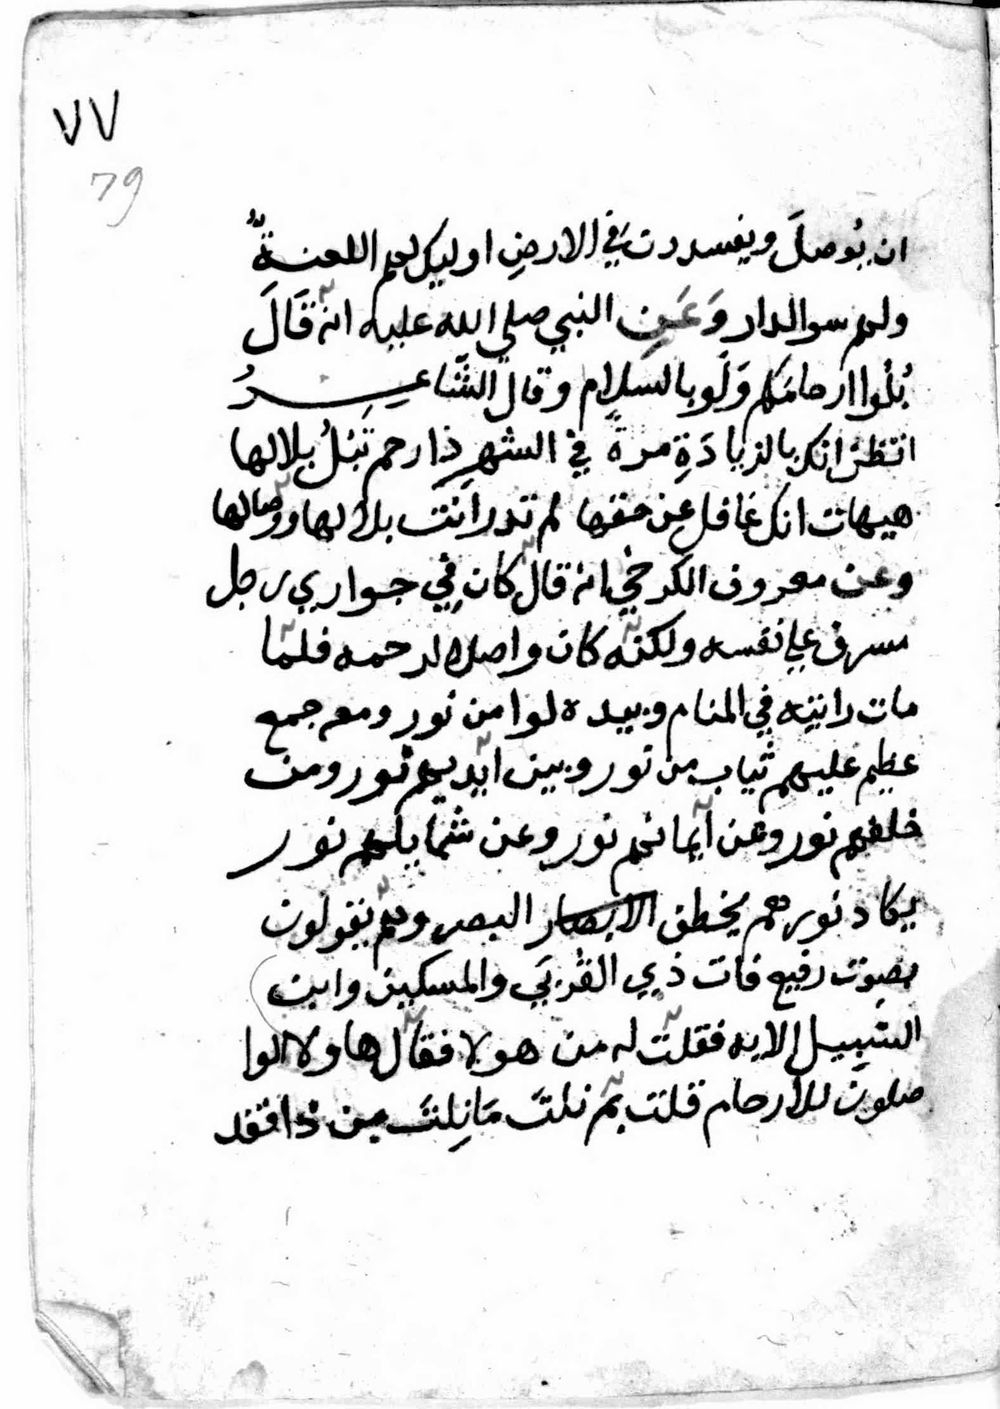 ٧٧
79
ان يُوصلَ ويفسدون في الارضِ اوليك لهم اللعنةُ
ولهم سو الدار وَعَنِ النبي صلي الله عليه انه قَالَ
بُلُوا ارحامَكم وَلَو بالسلامِ وقال الشَّاعِرُ
اتظن انك بالزيادَةِ مرةً في الشهرِ ذا رحم تَبُلُ بلالها
هيهات انك غافل عن حقها لم تدر انت بلالها ووصالها
وعن معروف الكرخي انه قال كان في جواري رجل
مسرف علي نفسه ولكنه كان واصلا لرحمه فلما
مات رايته في المنام وبيده لوا من نور ومعه جمع
عظيم عليهم ثياب من نور وبين ايديهم نور ومن
خلفهم نور وعن ايمانهم نور وعن شمايلهم نور
يكاد نورهم يخطف الابصار البصر وهم يقولون
بصوت رفيع فات ذي القُربَي والمسكين وابن
السبيل الايه فقلت له من هولا فقال هاولا الوا
صلون للارحام قلت بم نلتَ مَا نِلتَ مِن ذا فقد